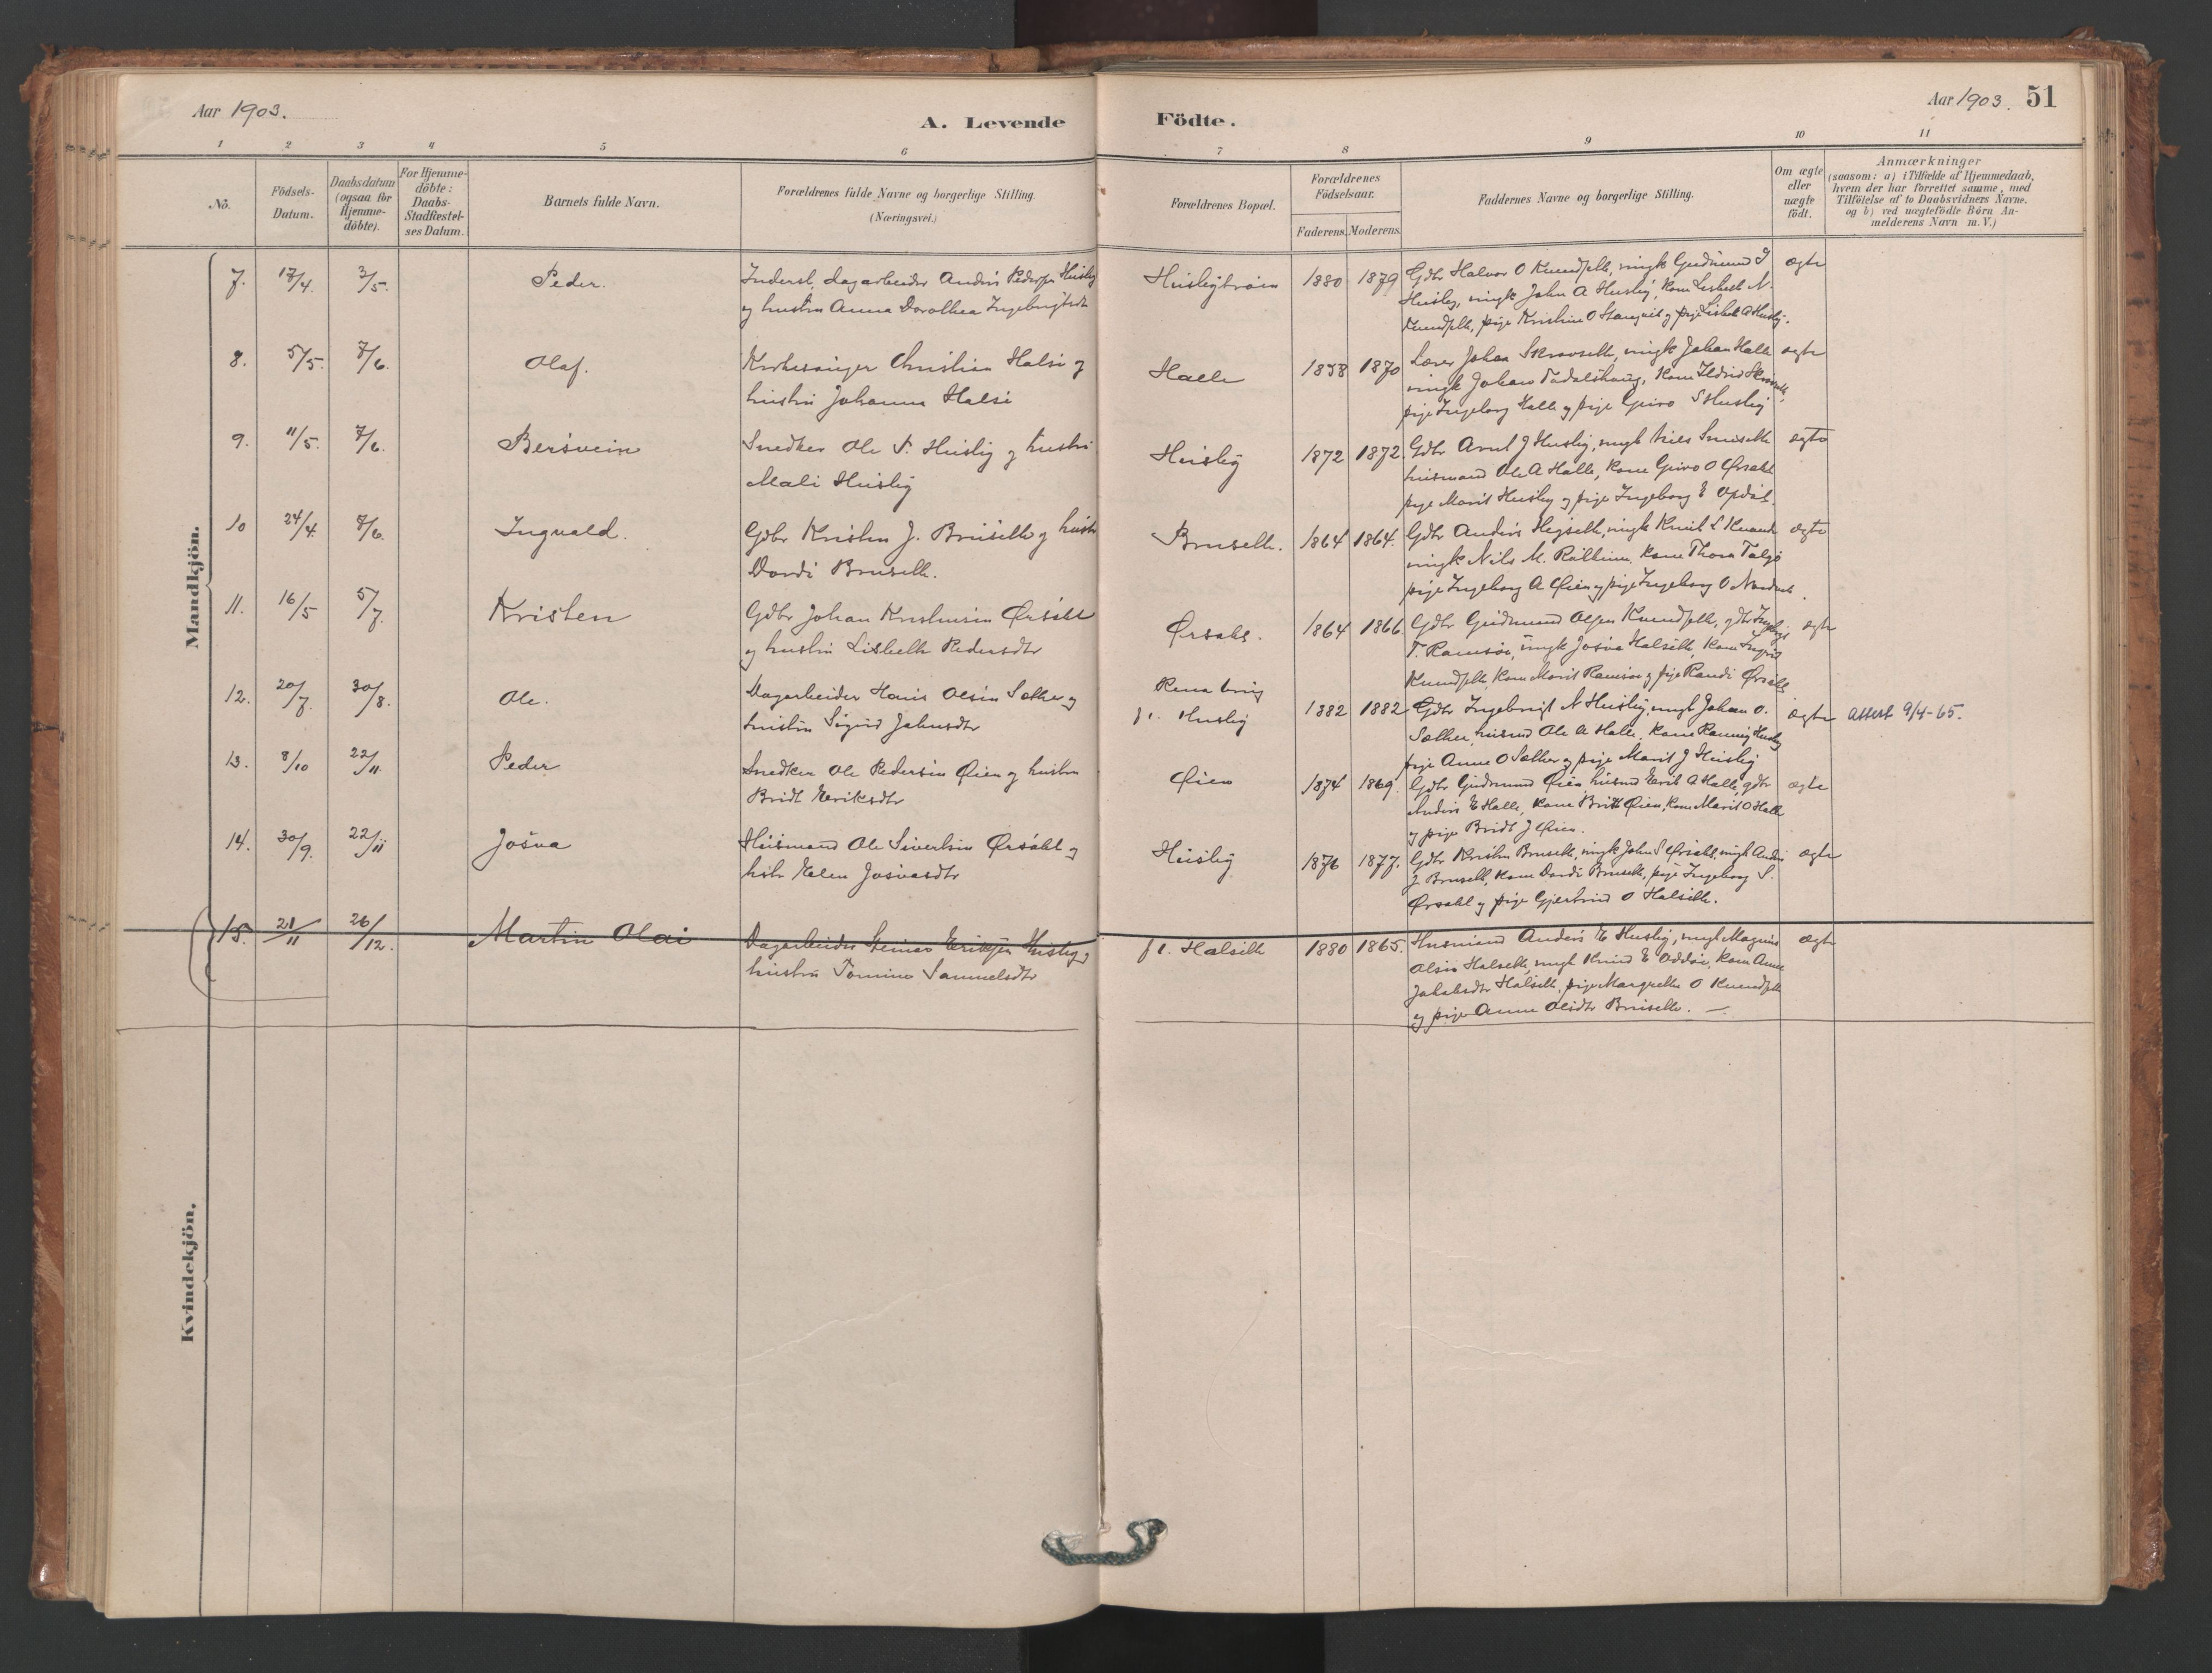 Aar 1903.
A. Levende
Födte.
Aar 1903. 51
1 2 3 4 5 6 7 8 9 10 11
No.
Födsels-
Datum.
Daabsdatum
(ogsaa for
Hjemme-
döbte).
For Hjemme-
döbte:
Daabs-
Stadfæstel-
ses Datum.
Barnets fulde Navn.
Forældrenes fulde Navne og borgerlige Stilling.
(Næringsvei.)
Forældrenes Bopæl.
Forældrenes
Födselsaar.
Faderens. Moderens.
Faddernes Navne og borgerlige Stilling.
Om ægte
eller
uægte
födt.
Anmærkninger
(saasom: a) i Tilfælde af Hjemmedaab,
hvem der har forrettet samme, med
Tilföielse af to Daabsvidners Navne.
og b) ved uægtefödte Börn An-
melderens Navn m. V.)
Mandkjön.
7. 17/4. 3/5. Peder.
Inderst, dagarbeider Anders Pedersen Husby
og hustru Anna Dorothea Ingebrigtsdtr
1880 1879
Gdbr Halvor O Kundseth, ungk Gudmund I
Husby, ungk John A Husby, kone Lisbeth N.
Kundseth, pige Kristine O og pige Lisbet A Husby.
ægte
8. 5/5. 7/6. Olaf.
Kirkesanger Christian Halse og
hustru Johanna Halse
Halle 1858 1870
Lærer Johan Skrovseth, ungk Johan Halle
ungk Johan Todalshaug, kone Ildrid Skrovseth,
pige Ingeborg Halle og pige Guro S Husby
ægte
9. 11/5. 7/6. Bersvein
Snedker Ole S. Husby og hustru
Mali Husby
Husby 1872 1872.
Gdbr Arnt J Husby, ungk Nils
husmand Ole A Halle, kone Guro O Ørsahl
pige Marit Husby og pige Ingeborg E Opdal.
ægte
10 24/4. 7/6. Ingvald.
Gdbr Kristen J. Bruseth og hustru
Dordi Bruseth.
Bruseth. 1864 1864.
Gdbr Anders Hegseth, ungk Knut L
ungk Nils M. kone Thora Talgø
pige Ingeborg A Øien og pige Ingeborg O
ægte
11. 16/5 5/7. Kristen
Gdbr Johan Kristensen Ørsahl
og hustru Lisbeth Pedersdtr
Ørsahl. 1864 1866.
Gdbr Gudmund Olsen Kundseth, gdbr
T. Ramsøi, ungk Josva Halseth, kone Ingrid
Kundseth, kone Marit Ramsøi og pige Randi Ørsahl
ægte
12. 20/7. 30/8. Ole.
Dagarbeider Hans Olsen Sæther og
hustru Sigrid Johnsdtr
f.t. Husby 1882 1882
Gdbr Ingebrigt N Husby, ungk Johan O.
Sæther, husmd Ole A Halle, kone Rannig Husby
pige Anne O Sæther og pige Marit J Husby
ægte
Attest 9/4-65.
13. 8/10 22/11. Peder
Snedker Ole Pedersen Øien og hustru
Bridt Eeriksdtr
Øien 1874 1869.
Gdbr Gudmund Øien, husmd Erik A Halle, gdbr
Anders E Halle, kone Brit Øien, kone Marit O Halle
og pige Bridt J Øien.
ægte
14. 30/9. 22/11 Josva
Husmand Ole Sivertsen Ørsahl og
hstr Elen Josvasdtr
Husby 1876 1877.
Gdbr Kristen Bruseth, ungk John S Ørsahl, ungk Anders
J. Bruseth, kone Dordi Bruseth, pige Ingeborg S.
Ørsahl og pige Gjertrud O Halseth.
ægte
15. 21/11 26/12. Martin Olai
Dagarbeider Steiner Eriksen Husby og
hustru Tomine Samuelsdtr
f.t. Halseth 1880 1865.
Husmand Anders E Husby, ungk Magnus
Olsen Halseth, ungk Knud E kone Anne
Jakobsdtr Halseth, pige Margrethe O Kundseth
og pige Anne Olsdtr Bruseth. —
ægte
Kvindekjön.